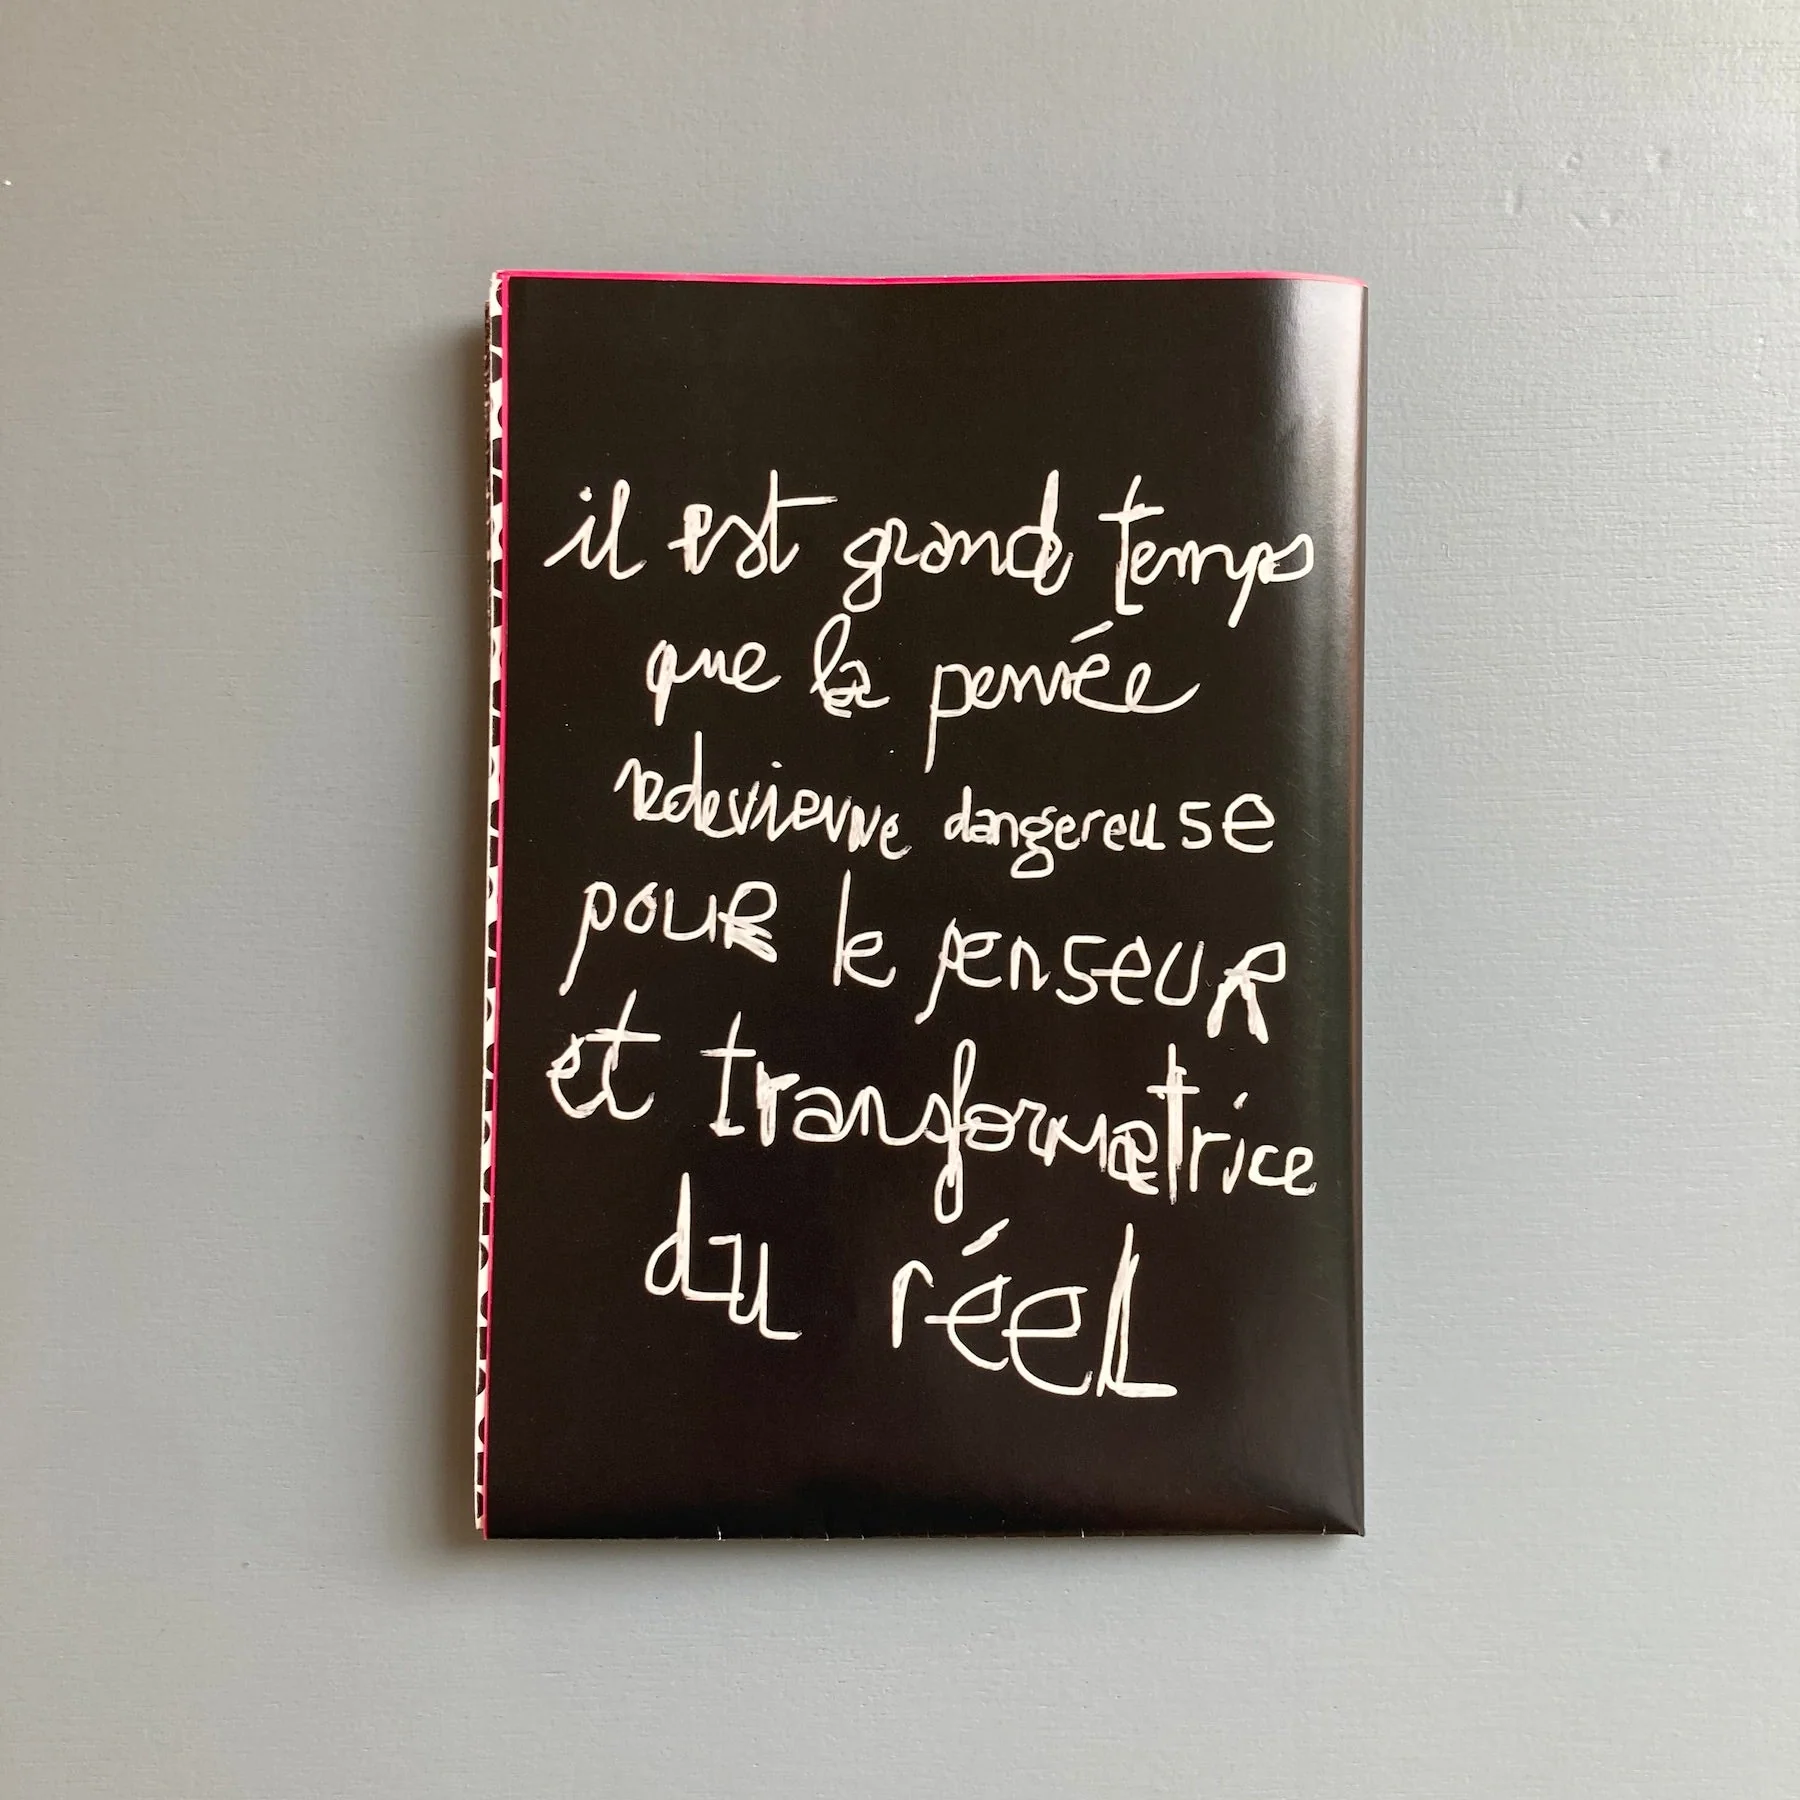 il est grand temps
que la pensée
redevienne dangereuse
pour le penseur
et transformatrice
du réel